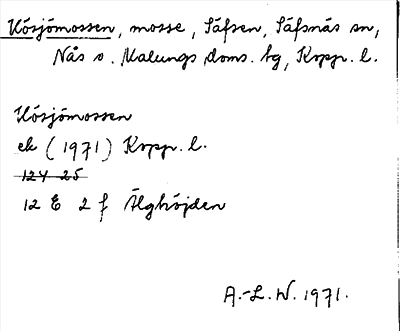 Hösjömossen, mosse, Säfsen, Säfsnäs sn,
Nås o. Malungs doms. tg, Kopp. l.
Hösjömossen
ek (1971) Kopp. l.
124 25
12 E 2 f Älghöjden
A.-L. W. 1971.